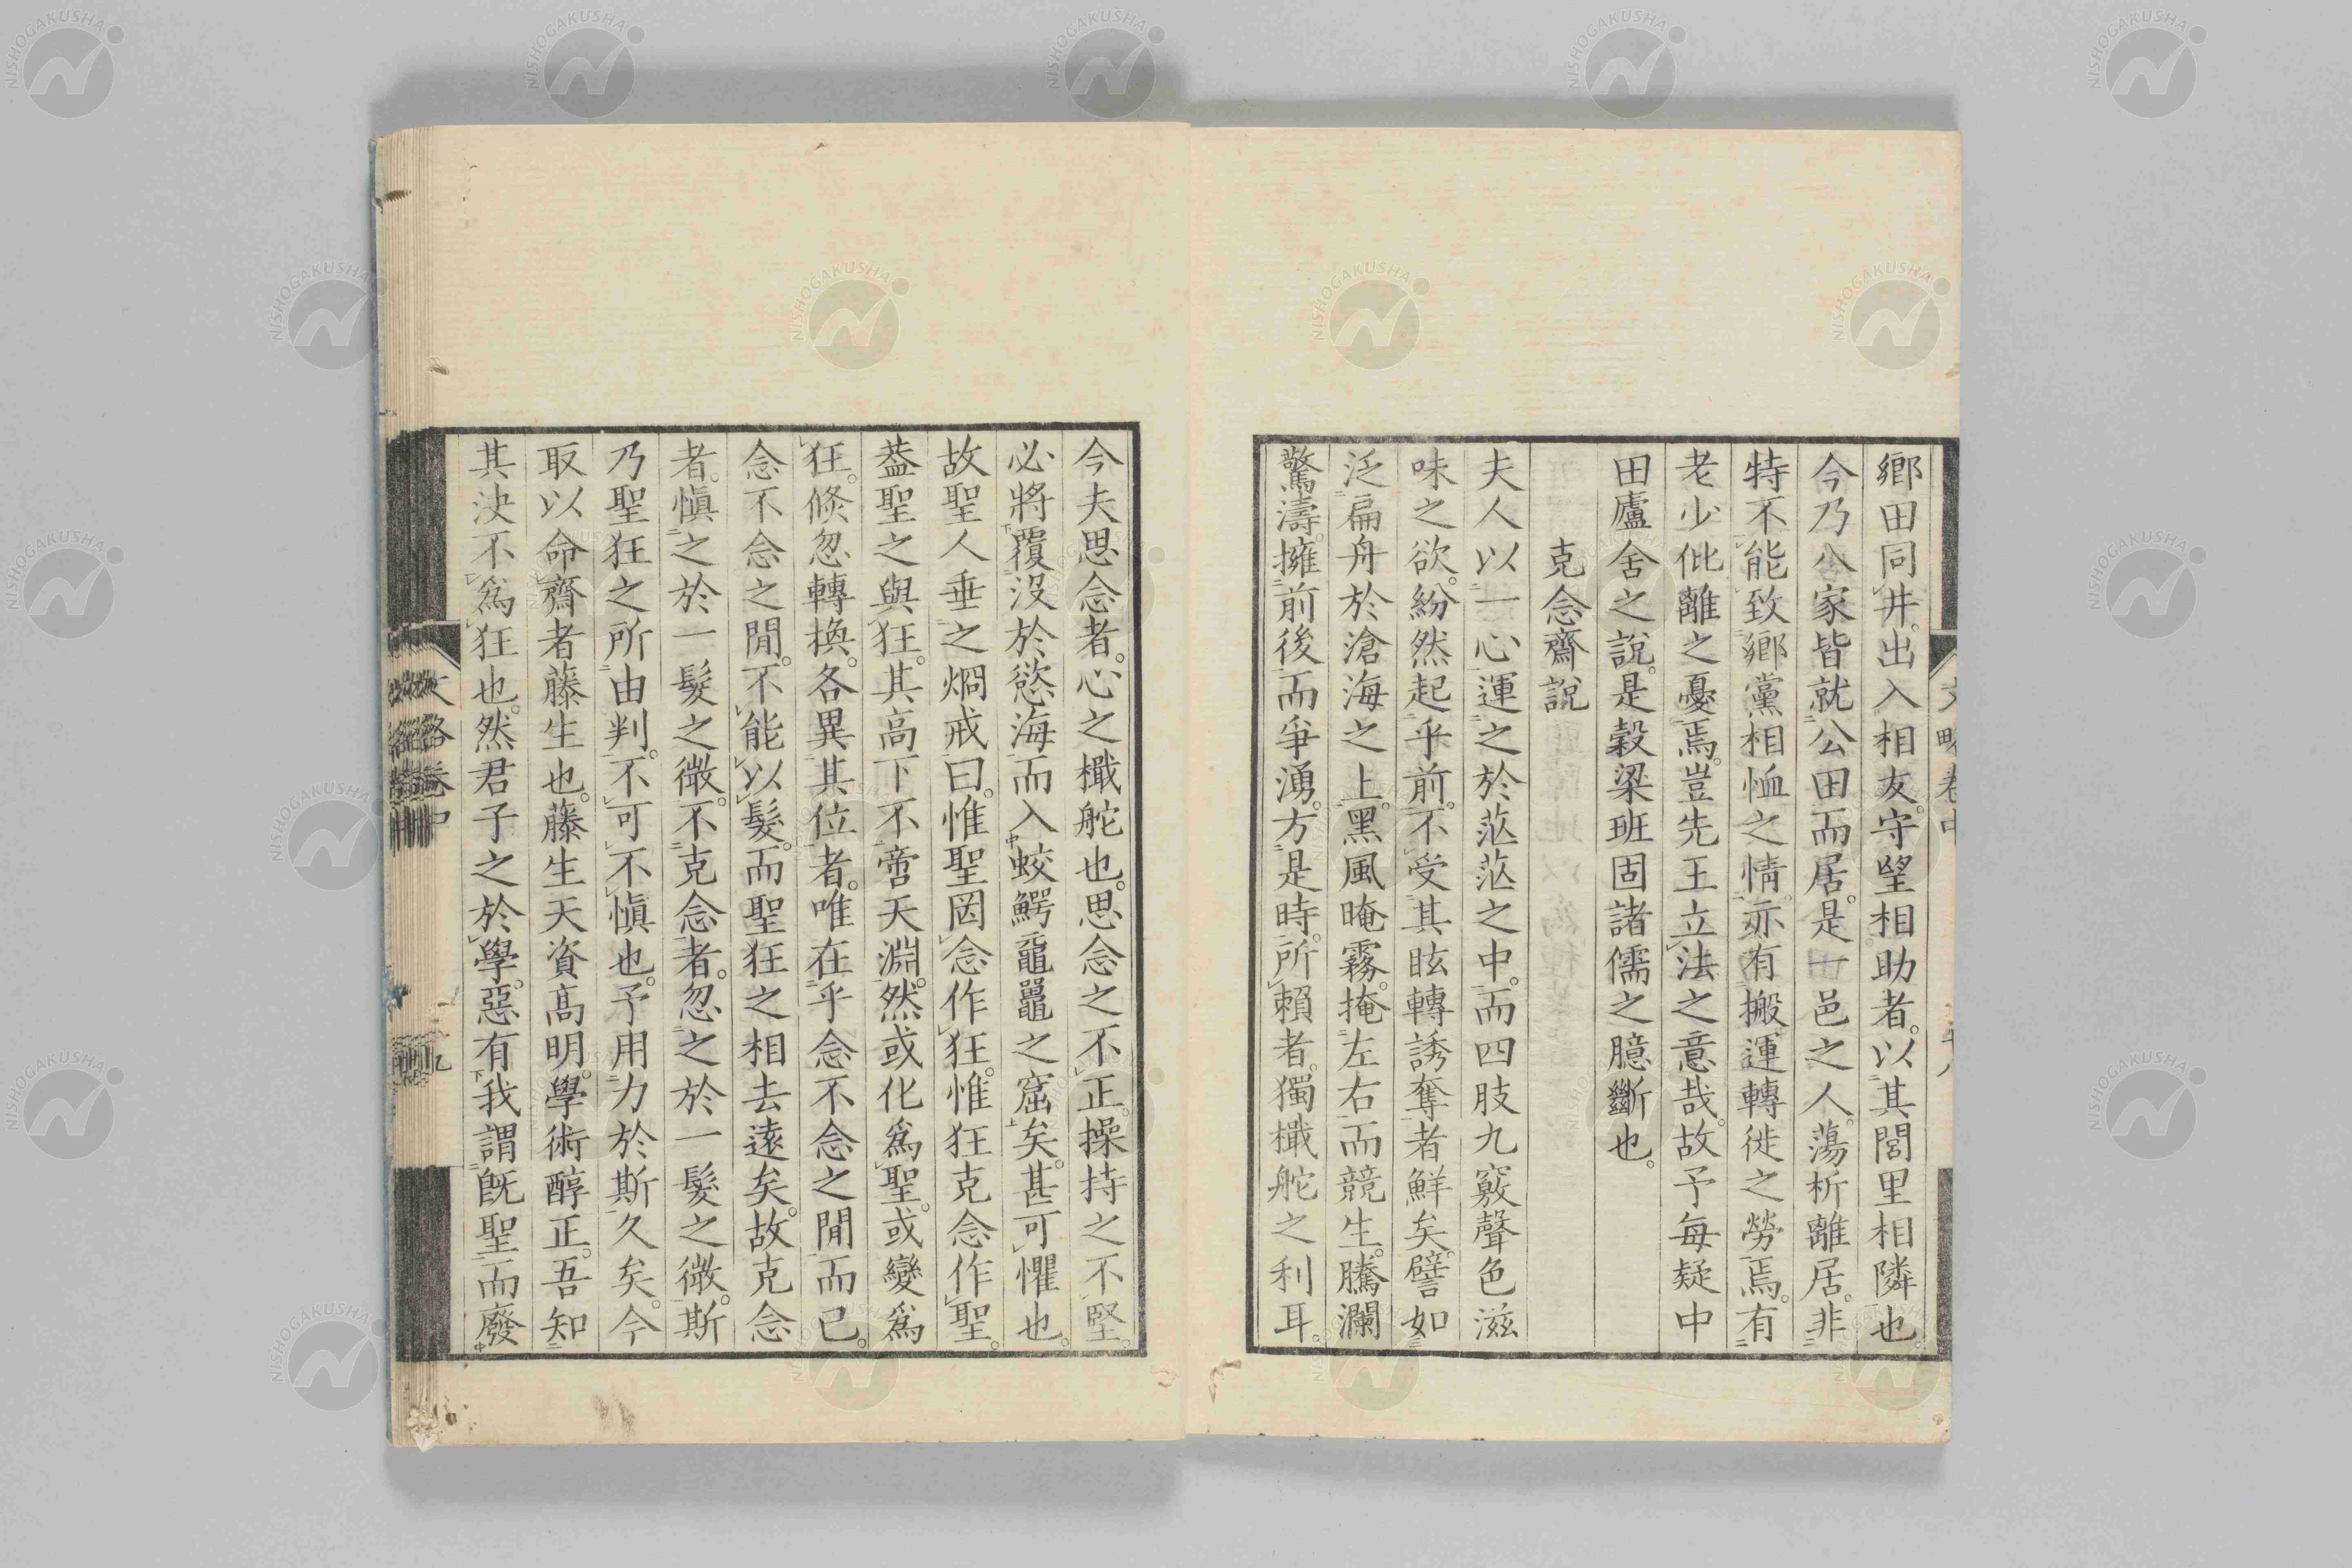 鄉田同井。出入相友。守望相助者。以其閭里相隣也。
今乃公家皆就公田而居。是一邑之人。蕩析離居。非
特不能致鄉黨相恤之情。亦有搬運轉徙之勞焉。有
老少仳離之憂焉。豈先王立法之意哉。故予每疑中
田廬舍之說。是穀梁班固諸儒之臆斷也。
克念齋說
夫人以一心運之於茫茫之中。而四肢九竅聲色滋
味之欲。紛然起乎前。不受其眩轉誘奪者鮮矣。譬如
泛扁舟於滄海之上。黑風晻霧。掩左右而競生。騰瀾
驚濤。擁前後而爭湧。方是時。所賴者。獨檝舵之利耳。
今夫思念者。心之檝舵也。思念之不正。操持之不堅。
必將覆沒於慾海而入蛟鰐黿鼉之窟矣。甚可懼也。
故聖人垂之烱戒曰。惟聖罔念作狂。惟狂克念作聖。
葢聖之與狂。其高下不啻天淵。然或化爲聖。或變爲
狂。倐忽轉換。各異其位者。唯在乎念不念之閒而已。
念不念之閒。不能以髮。而聖狂之相去遠矣。故克念
者。愼之於一髮之微。不克念者。忽之於一髮之微。斯
乃聖狂之所由判。不可不愼也。予用力於斯久矣。今
取以命齋者藤生也。藤生天資高明。學術醇正。吾知
其決不爲狂也。然君子之於學。惡有我謂旣聖而廢
文略卷中
九
NISHOGAKUSHA